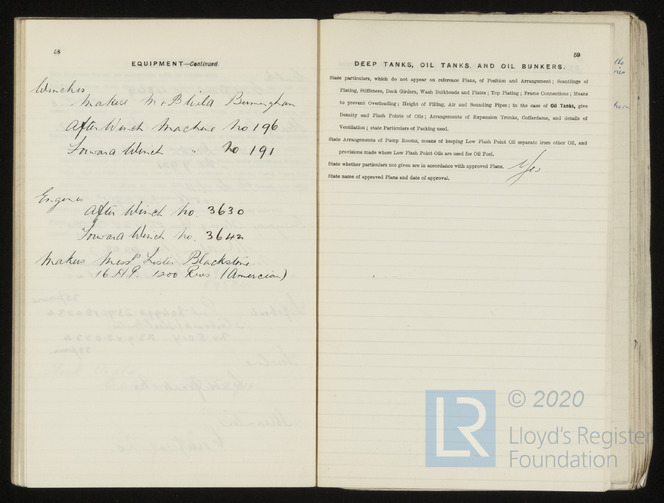 58
EQUIPMENT—Continued.
Winches
Makers M & B Birmingham
After Winch Machine No 196
Forward Winch " No 191
Engines
After Winch No. 3630
Forward Winch No. 3642
Makers Messrs Lister Blackstone
16 H.P. 1200 Revs (Amercian)
59
DEEP TANKS, OIL TANKS, AND OIL BUNKERS.
State particulars, which do not appear on reference Plans, of Position and Arrangement; Scantlings of
Plating, Stiffeners, Deck Girders, Wash Bulkheads and Plates; Top Plating; Frame Connections; Means
to prevent Overloading; Height of Filling, Air and Sounding Pipes; in the case of Oil Tanks, give
Density and Flash Points of Oils; Arrangements of Expansion Trunks, Cofferdams, and details of
Ventilation; state Particulars of Packing used.
State Arrangements of Pump Rooms, means of keeping Low Flash Point Oil separate from other Oil, and
provisions made where Low Flash Point Oils are used for Oil Fuel.
State whether particulars not given are in accordance with approved Plans. Yes
State name of approved Plans and date of approval.
LR
© 2020
Lloyd's Register
Foundation